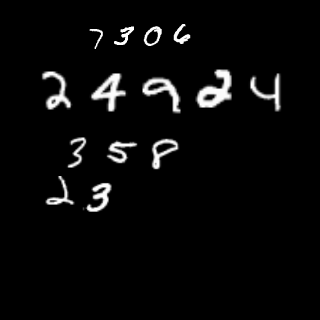 7306
24924
358
23